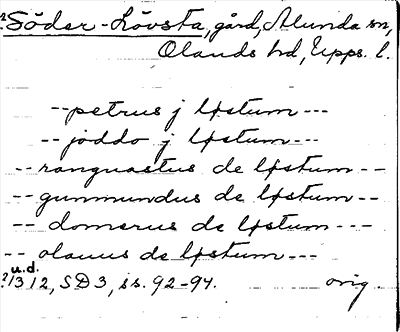 ?Söder-Lövsta, gård, Alunda sn,
Olands hd, Upps. l.
--petrus j løstum---
--joddo j løstum---
--ranguastus de løstum--
--gunmundus de løstum--
--domerus de løstum---
--olauus de løstum--
u.d.
?1312, SD3, ss. 92-94. orig.